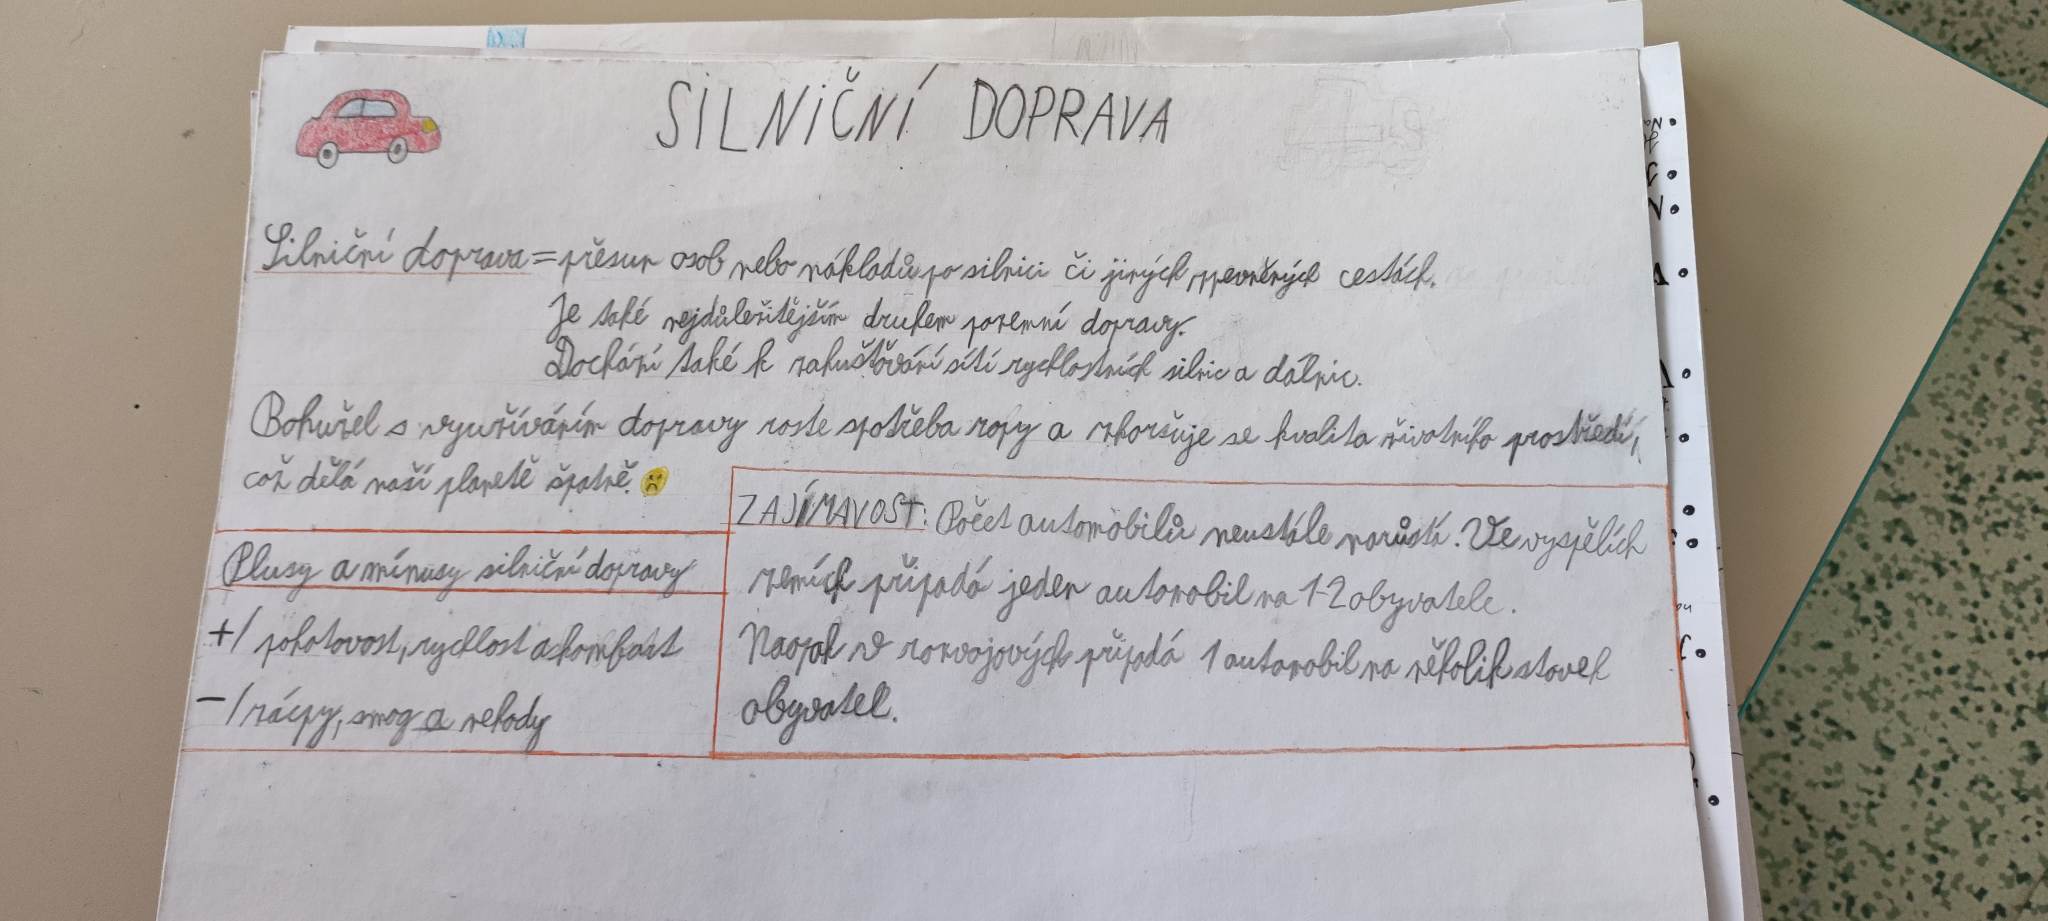 SILNIČNÍ DOPRAVA
Silniční doprava = přesun osob nebo nákladů po silnici či jiných zpevněných cestách.
Je také nejdůležitějším druhem pozemní dopravy.
Dochází také k zahušťování sítí rychlostních silnic a dálnic.
Bohužel s využíváním dopravy roste spotřeba ropy a zhoršuje se kvalita životního prostředí,
což dělá naší planetě špatně.
ZAJÍMAVOST: Počet automobilů neustále narůstá. Ve vyspělích
zemích připadá jeden automobil na 1-2 obyvatele.
Naopak v rozvojových připadá 1 automobil na několik stovek
obyvatel.
Plusy a mínusy silniční dopravy
+/ pohotovost, rychlost a komfort
-/ zácpy, smog a nehody